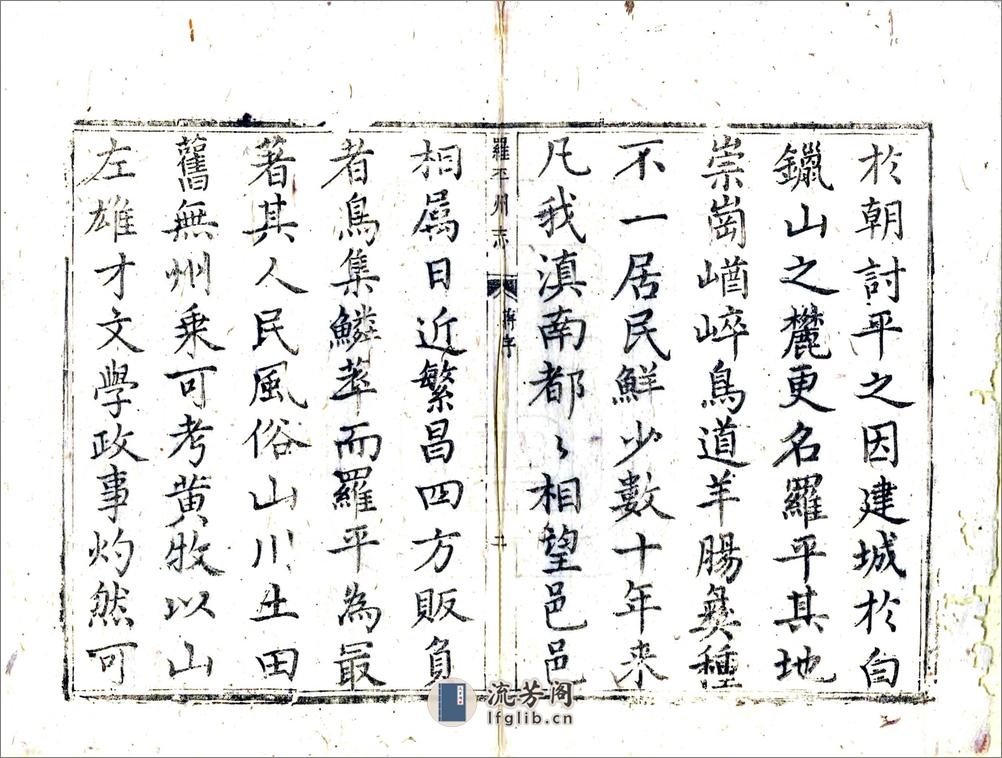 於朝討平之因建城於白
鑞山之麓更名羅平其地
崇崗崷崒鳥道羊腸彝種
不一居民鮮少數十年来
凡我滇南都〻相望邑邑
羅平州志
蔣序
二
相属日近繁昌四方販負
者鳥集鱗萃而羅平為最
著其人民風俗山川土田
舊無州乗可考黄牧以山
左雄才文學政事灼然可
流芳阁
lfglib.cn